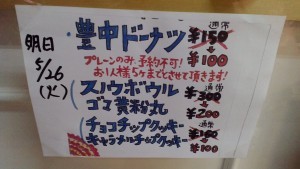 明日
5/26
(火)
豊中ドーナツ 通常 ¥150 ¥100
プレーンのみ 予約不可!
お1人様5ケまでとさせて頂きます!
スノウボウル 通常 ¥300
ゴマ黄粉丸 ¥200
チョコチップクッキー 通常 ¥150
キャラメルチップクッキー ¥100